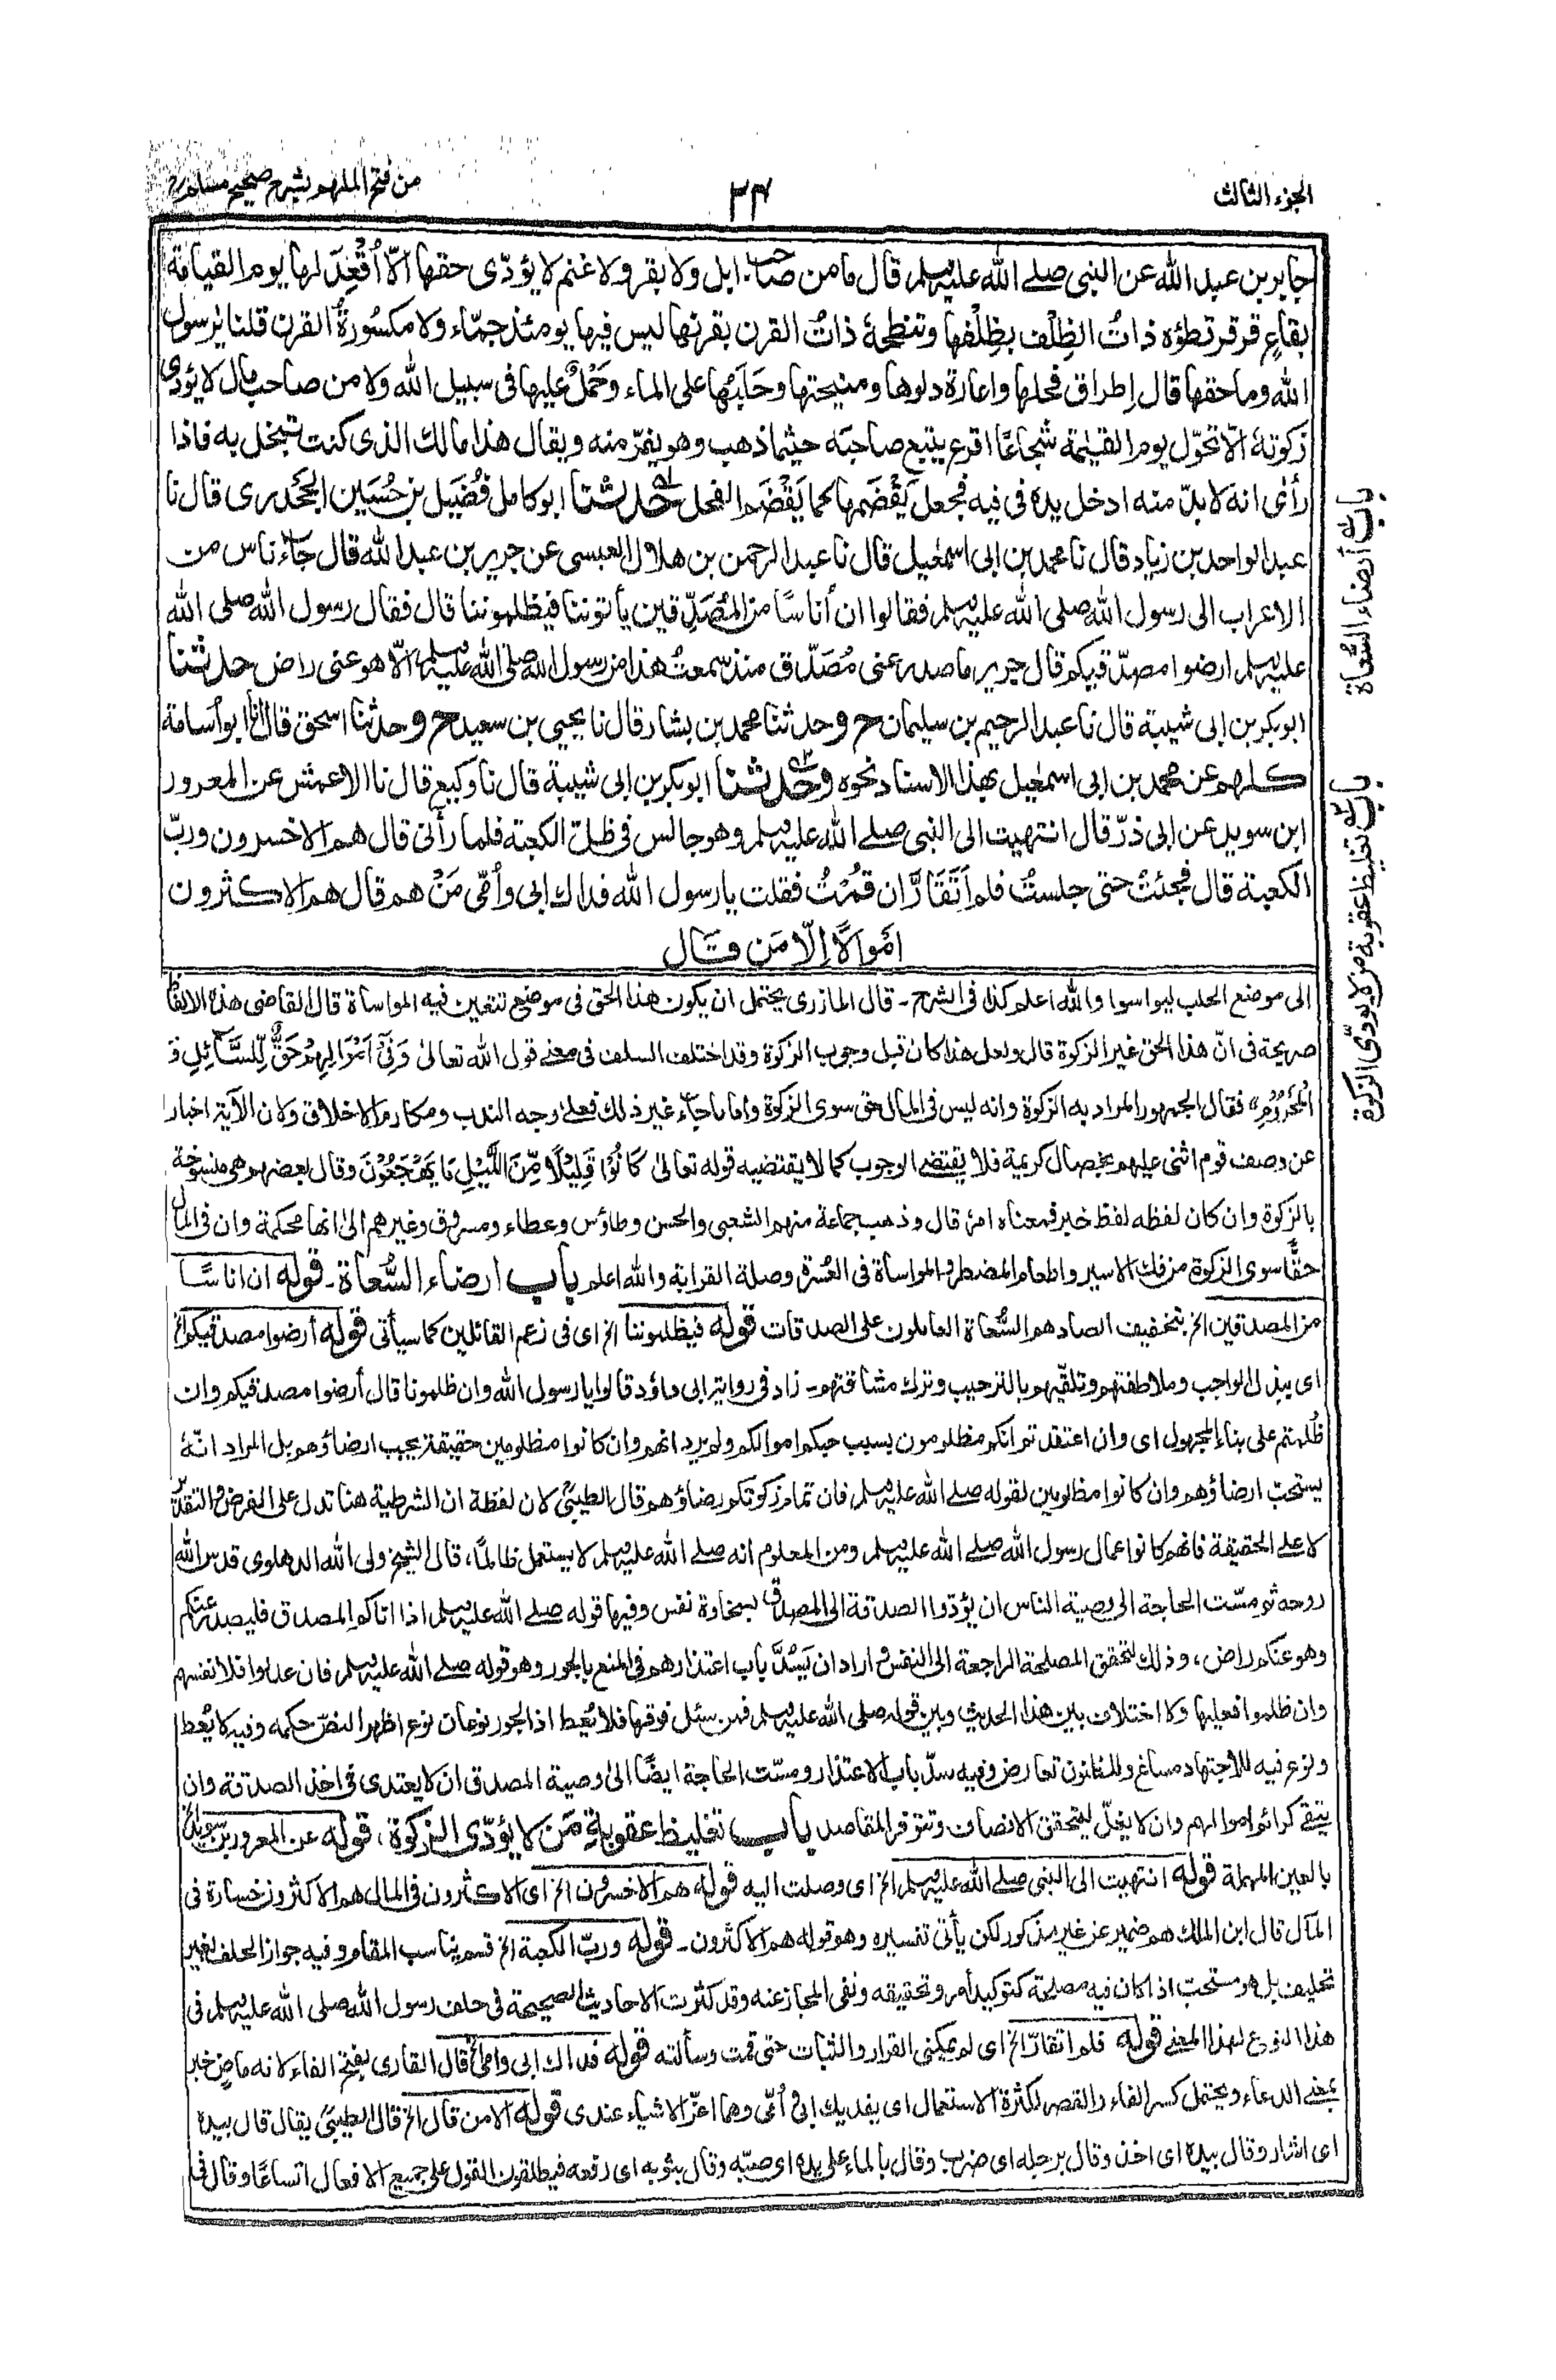 الجزء الثالث
٣٤
من فتح الملهم بشرح صحيح مسلم
جابر بن عبد الله عن النبي صلے الله عليہ وسلم قال ما من صاحب ابل ولا بقر ولا غنم لا يؤدّى حقها الّا أُقْعِدَ لها يوم القيامة
بقاعٍ قرقر تطؤه ذاتُ الظِلْف بظِلْفها وتنطحهٗ ذاتُ القرن بقرنها ليس فيها يومئذ جمّاء ولا مكسُورةُ القرن قلنا يٰرسول
الله وما حقها قال إطراق فحلها واعارة دلوها ومنيحتها وحَلَبُها على الماء وحَمْلٌ عليها فى سبيل الله ولا من صاحب مال لا يؤدى
زكوتهٗ الّا تحوّل يوم القيٰمة شجاعًا اقرع يتبع صاحبَه حيثما ذهب وهو يفرّ منه ويقال هذا مالك الذى كنت تبخل به فاذا
رأىٰ انه لا بدّ منه ادخل يده فى فيه فجعل يَقْضَمها كما يَقْضَم الفحل حدثنا ابو كامل فُضَيل بن حُسَين الجَحْدرى قال نا
عبد الواحد بن زياد قال نا محمد بن ابى اسمٰعيل قال نا عبد الرحمن بن هلال العبسى عن جرير بن عبد الله قال جاء ناس من
الاعراب الى رسول الله صلى الله عليہ وسلم فقالوا ان أناسًا من المُصَدِّقين يأتوننا فيظلموننا قال فقال رسول الله صلى الله
عليہ وسلم ارضوا مصدّقيكم قال جرير ما صدر عنى مُصَدّق منذ سمعتُ هذا من رسول الله صلى الله عليہ وسلم الّا هو عنى راض حدثنا
ابو بكر بن ابى شيبة قال نا عبد الرحيم بن سليمان ح وحدثنا محمد بن بشار قال نا يحيى بن سعيد ح وحدثنا اسحٰق قال انا ابو أسامة
كلهم عن محمد بن ابى اسمٰعيل بهذا الاسناد نحوه وحدثنا ابو بكر بن ابى شيبة قال نا وكيع قال نا الاعمش عن المعرور
ابن سويد عن ابى ذرّ قال انتهيت الى النبى صلے الله عليہ وسلم وهو جالس فى ظلّ الكعبة فلما رأنى قال هم الاخسرون وربّ
الكعبة قال فجئتُ حتى جلستُ فلم اَتَقَارَّ ان قُمْتُ فقلت يا رسول الله فداك ابى وأمّى مَنْ هم قال هم الاكثرون
اَموالًا اِلّا مَن قال
باب أرضاء السُّعاة
باب تغليظ عقوبة من لا يودّى الزكوة
الى موضع الحلب ليواسوا والله اعلم كذا فى الشرح ـ قال المازرى يحتمل ان يكون هذا الحق فى موضع تتعين فيه المواساة قال القاضى هذه الالفاظ
صريحة فى انّ هذا الحق غير الزكوة قال ولعل هذا كان قبل وجوب الزكوة وقد اختلف السلف فى معنے قول الله تعالىٰ وَفِىْ اَمْوَالِهِمْ حَقٌّ لِّلسَّائِلِ وَ
الْمَحْرُوْمِ» فقال الجمهور المراد به الزكوة وانه ليس فى المال حق سوى الزكوة واما ما جاء غير ذلك فعلىٰ وجه الندب ومكارم الاخلاق ولان الآية اخبار
عن وصف قوم اثنى عليهم بخصال كريمة فلا يقتضے الوجوب كما لا يقتضيه قوله تعالىٰ كَانُوْا قَلِيْلًا مِّنَ اللَّيْلِ مَا يَهْجَعُوْنَ وقال بعضهم هى منسوخة
بالزكوة وان كان لفظه لفظ خبر فمعناه امر قال وذهب جماعة منهم الشعبى والحسن وطاؤس وعطاء ومسروق وغيرهم الىٰ انها محكمة وان فى المال
حقًّا سوى الزكوة من فك الاسير واطعام المضطر والمواساة فى العُسْرة وصلة القرابة والله اعلم باب ارضاء السُّعاة ـ قوله ان اناسًا
من المصدقين الخ بتخفيف الصاد هم السُّعاة العاملون على الصدقات قوله فيظلموننا الخ اى فى زعم القائلين كما سيأتى قوله أرضوا مصدقيكم الخ
اى ببذل الواجب وملاطفتهم وتلقّيهم بالترحيب وترك مشاقتهم ـ زاد فى رواية ابى داؤد قالوا يا رسول الله وان ظلمونا قال أرضوا مصدقيكم وان
ظُلمتم على بناء المجهول اى وان اعتقدتم انكم مظلومون بسبب حبكم اموالكم ولم يرد انهم وان كانوا مظلومين حقيقة يجب ارضاؤهم بل المراد انّهٗ
يستحبّ ارضاؤهم وان كانوا مظلومين لقوله صلے الله عليہ وسلم فان تمام زكوتكم رضاؤهم قال الطيبىّ لان لفظة ان الشرطية هنا تدل على الفرض والتقدير
لا علے الحقيقة فانهم كانوا عمال رسول الله صلے الله عليہ وسلم ومن المعلوم انه صلے الله عليہ وسلم لا يستعمل ظالمًا، قال الشيخ ولى الله الدهلوى قدس الله
روحه ثم مسّت الحاجة الى وصية الناس ان يؤدوا الصدقة الى المصدق بسخاوة نفس وفيها قوله صلے الله عليہ وسلم اذا اتاكم المصدق فليصدر عنكم
وهو عنكم راض، وذلك لتحقق المصلحة الراجعة الى النفس واراد ان يَسُدَّ باب اعتذارهم فى المنع بالجور وهو قوله صلے الله عليہ وسلم فان عدلوا فلانفسهم
وان ظلموا فعليها ولا اختلاف بين هذا الحديث وبين قوله صلى الله عليہ وسلم فمن سئل فوقها فلا يُعْط اذ الجور نوعان نوع اظهر النصّ حكمه وفيه لا يُعْط
ونوع فيه للاجتهاد مساغ وللظنون تعارض وفيه سدّ باب الاعتذار ومسّت الحاجة ايضًا الىٰ وصية المصدق ان لا يعتدى فى اخذ الصدقة وان
يتقے كرائم اموالهم وان لا يغلّ ليتحقق الانصاف وتتوفر المقاصد باب تغليظ عقوبةِ مَن لا يؤدّى الزكوة، قوله عن المعرور بن سويد الخ
بالعين المهملة قوله انتهيت الى النبى صلے الله عليہ وسلم الخ اى وصلت اليه قوله هم الاخسرون الخ اى الاكثرون فى المال هم الاكثرون خسارة فى
المآل قال ابن الملك هم ضمير عن غير مذكور لكن يأتى تفسيره وهو قوله هم الاكثرون ـ قوله وربّ الكعبة الخ قسم يناسب المقام وفيه جواز الحلف بغير
تحليف بل هو مستحبّ اذا كان فيه مصلحة كتوكيد أمر وتحقيقه ونفى المجاز عنه وقد كثرت الاحاديث الصحيحة فى حلف رسول الله صلى الله عليہ وسلم فى
هذا النوع لهذا المعنے قوله فلم اتقارّ الخ اى لم يمكنى القرار والثبات حتى قمت وسألته قوله فداك ابى وامى الخ قال القارى بفتح الفاء لانه ماضٍ خبر
بمعنے الدعاء ويحتمل كسر الفاء والقصر لكثرة الاستعمال اى يفديك ابى وأمّى وهما اعزّ الاشياء عندى قوله الا من قال الخ قال الطيبىّ يقال قال بيده
اى اشار وقال بيده اى اخذ وقال برجله اى ضرب وقال بالماء على يده اى صبّه وقال بثوبه اى رفعه فيطلقون القول على جميع الافعال اتساعًا وقال فى